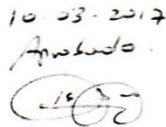 10-03-2017
Aprobado.